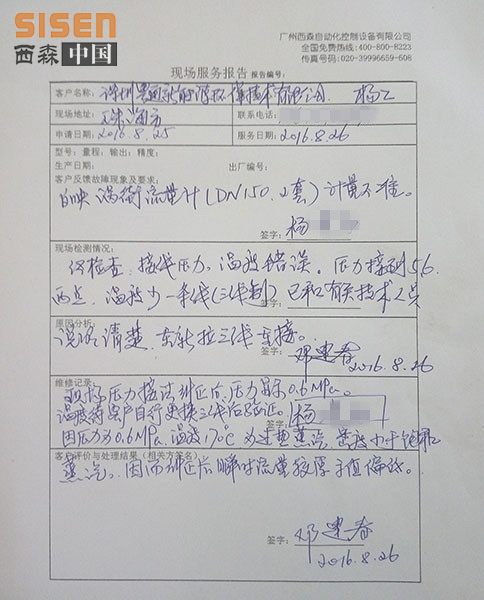 SISEN
西森中国
广州西森自动化控制设备有限公司
全国免费热线:400-800-8223
传真号码:020-39996659-608
现场服务报告 报告编号:
客户名称: 深圳 新能源 技术有限公司 杨工
现场地址: 珠海市 联系电话:
申请日期: 2016.8.25 服务日期: 2016.8.26
型号: 量程: 输出: 精度:
生产日期: 出厂编号:
客户反馈故障现象及要求:
反映涡街流量计(DN150. 2套)计量不准。
签字: 杨
现场检测情况:
经检查.接线压力,温度错误。压力接到5 6
两点,温度少一条线(三线制) 已和有关技术人员
签字:
原因分析:
说清楚.重新拉三线连接。
邓建春
2016.8.26
维修记录:
现场压力接法纠正后.压力显示0.6MPa。
温度待客户自行更换三线后验证。 杨
因压力为0.6MPa.温度170℃为过热蒸汽,密度小于饱和
客户评价与处理结果(相关方签名):
蒸汽。因而纠正后瞬时流量较原于值偏低。
签字: 邓建春
2016.8.26